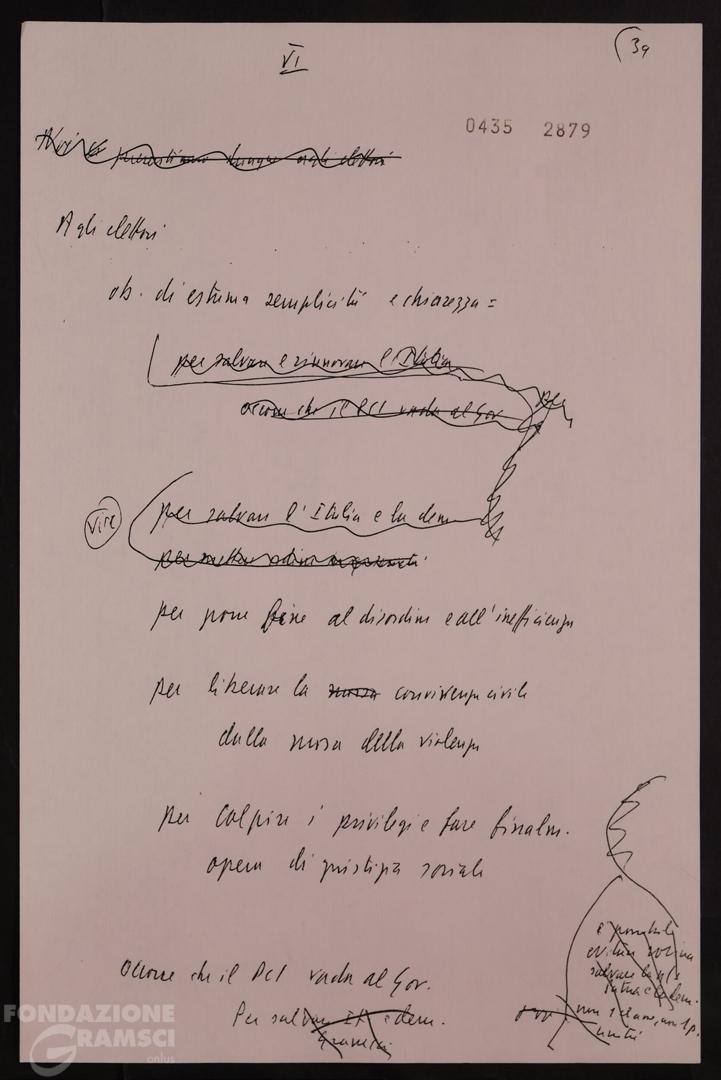 VI
39
0435 2879
presentiamo dunque agli elettori
Agli elettori
ob. di estrema semplicità e chiarezza =
per salvare e rinnovare l'Italia
occorre che il PCI vada al Gov
per salvare l'Italia e la dem
per mettere ordine
per porre fine al disordine e all'inefficienza
per liberare la convivenza civile
dalla morsa della violenza
per colpire i privilegi e fare finalm.
opera di giustizia sociale
Occorre che il PCI vada al Gov.
Per salvare It e dem.
è possibile
evitare rovina
salvare
unità
FONDAZIONE
GRAMSCI
onlus